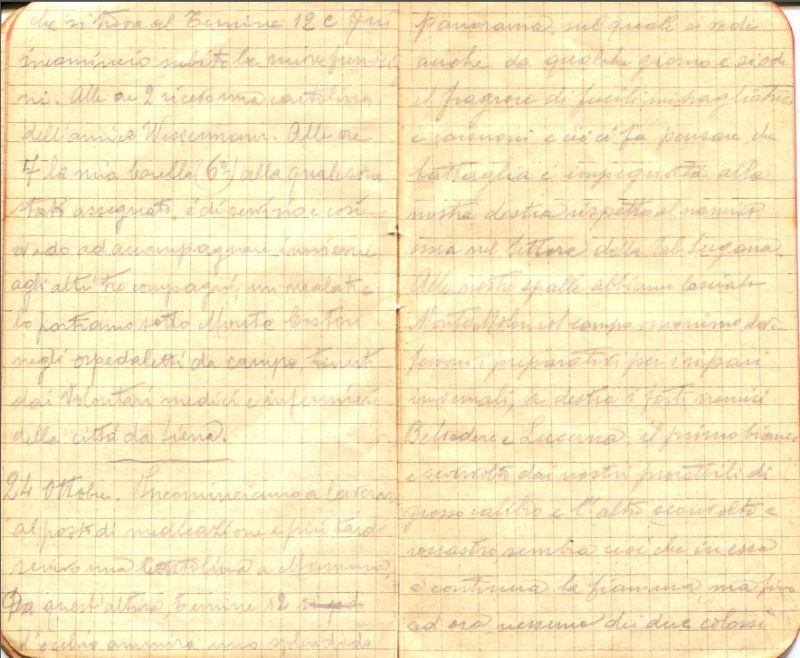 che si trova al Termine 12 e qui
incomincio subito le nuove funzio
ni. Alle ore 2 ricevo una cartolina
dell'amico Wassermann. Alle ore
7 la mia barella (6ª) alla quale sono
stato assegnato, è di servizio e così
vado ad accompagnare insieme
agli altri tre compagni, un malato e
lo portiamo sotto Monte Costen
negli ospedaletti da campo, tenuti
dai Volontari medici e infermieri
della città da Siena.
24 Ottobre. Incominciamo a lavorare
al posto di medicazione e più tardi
scrivo una Cartolina a Mamma,
Da quest'altura, Termine 12
l'occhio ammira uno splendido
panorama, sul quale si vede
anche da qualche giorno e si ode
il fragore di fucili mitragliatrici
e cannoni e ciò ci fa pensare che
battaglia è impegnata alla
nostra destra rispetto al nemico
ossia nel settore della Val Sugana.
Alle nostre spalle abbiamo lasciato
Monte Molon col campo omonimo dove
fervono i preparativi per i ripari
invernali, a destra i forti nemici
Belvedere e Lucerna, il primo bianco
e sconvolto dai nostri proiettili di
grosso calibro e l'altro sconvolto e
rossastro, sembra cioè che in esso
è continua la fiamma, ma fino
ad ora nessuno dei due colossi